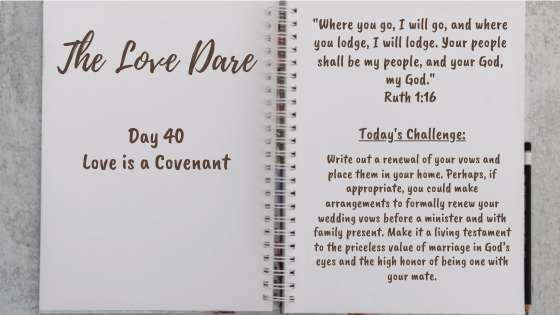 The Love Dare
Day 40
Love is a Covenant
"Where you go, I will go, and where
you lodge, I will lodge. Your people
shall be my people, and your God,
my God."
Ruth 1:16
Today's Challenge:
Write out a renewal of your vows and
place them in your home. Perhaps, if
appropriate, you could make
arrangements to formally renew your
wedding vows before a minister and with
family present. Make it a living testament
to the priceless value of marriage in God's
eyes and the high honor of being one with
your mate.